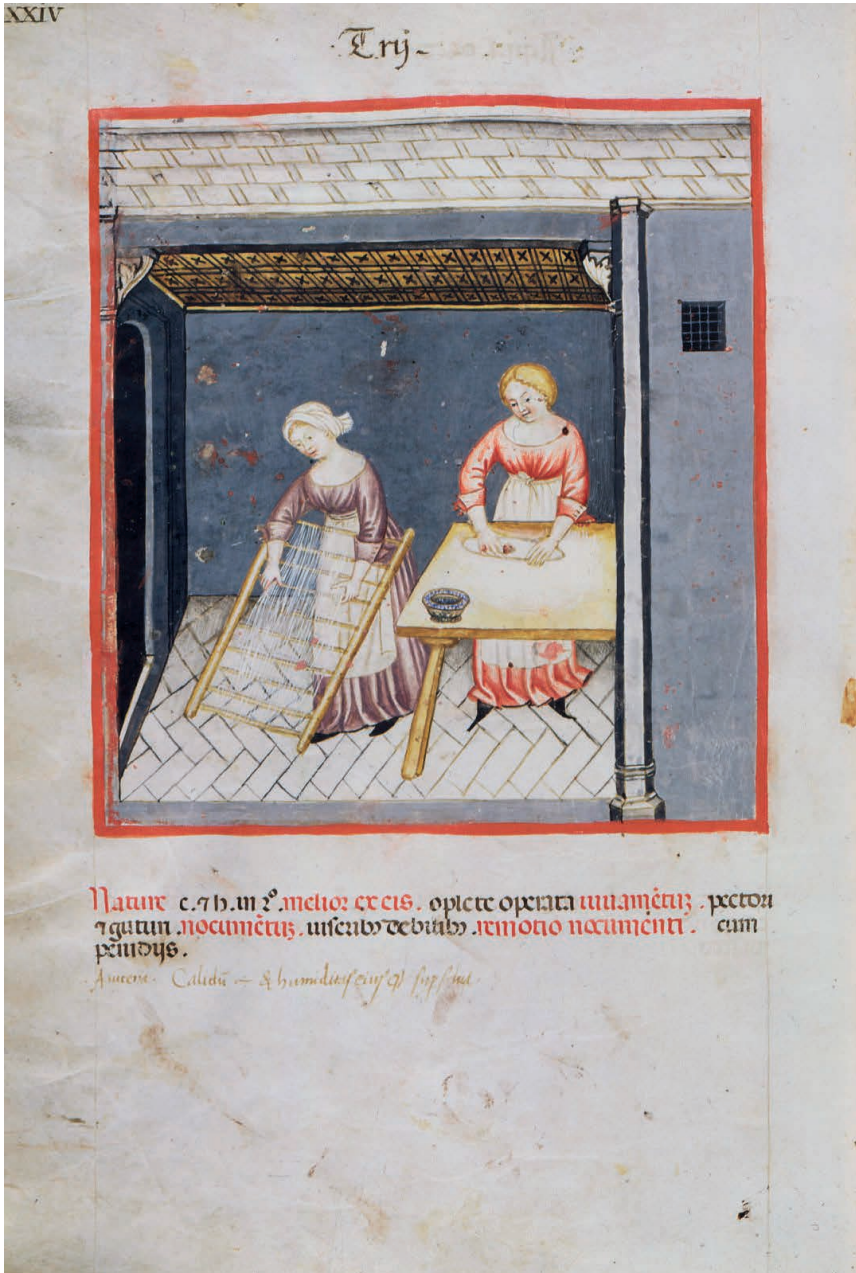 XXIV
Trij
Nature c. ⁊ h. in 2º. melior ex eis. oplete operata iuuamētuʒ. pectori
⁊ guturi. nocumētuʒ. uiscerib debilib. remotio nocumenti. cum
penidijs.
Calidū & humiditas